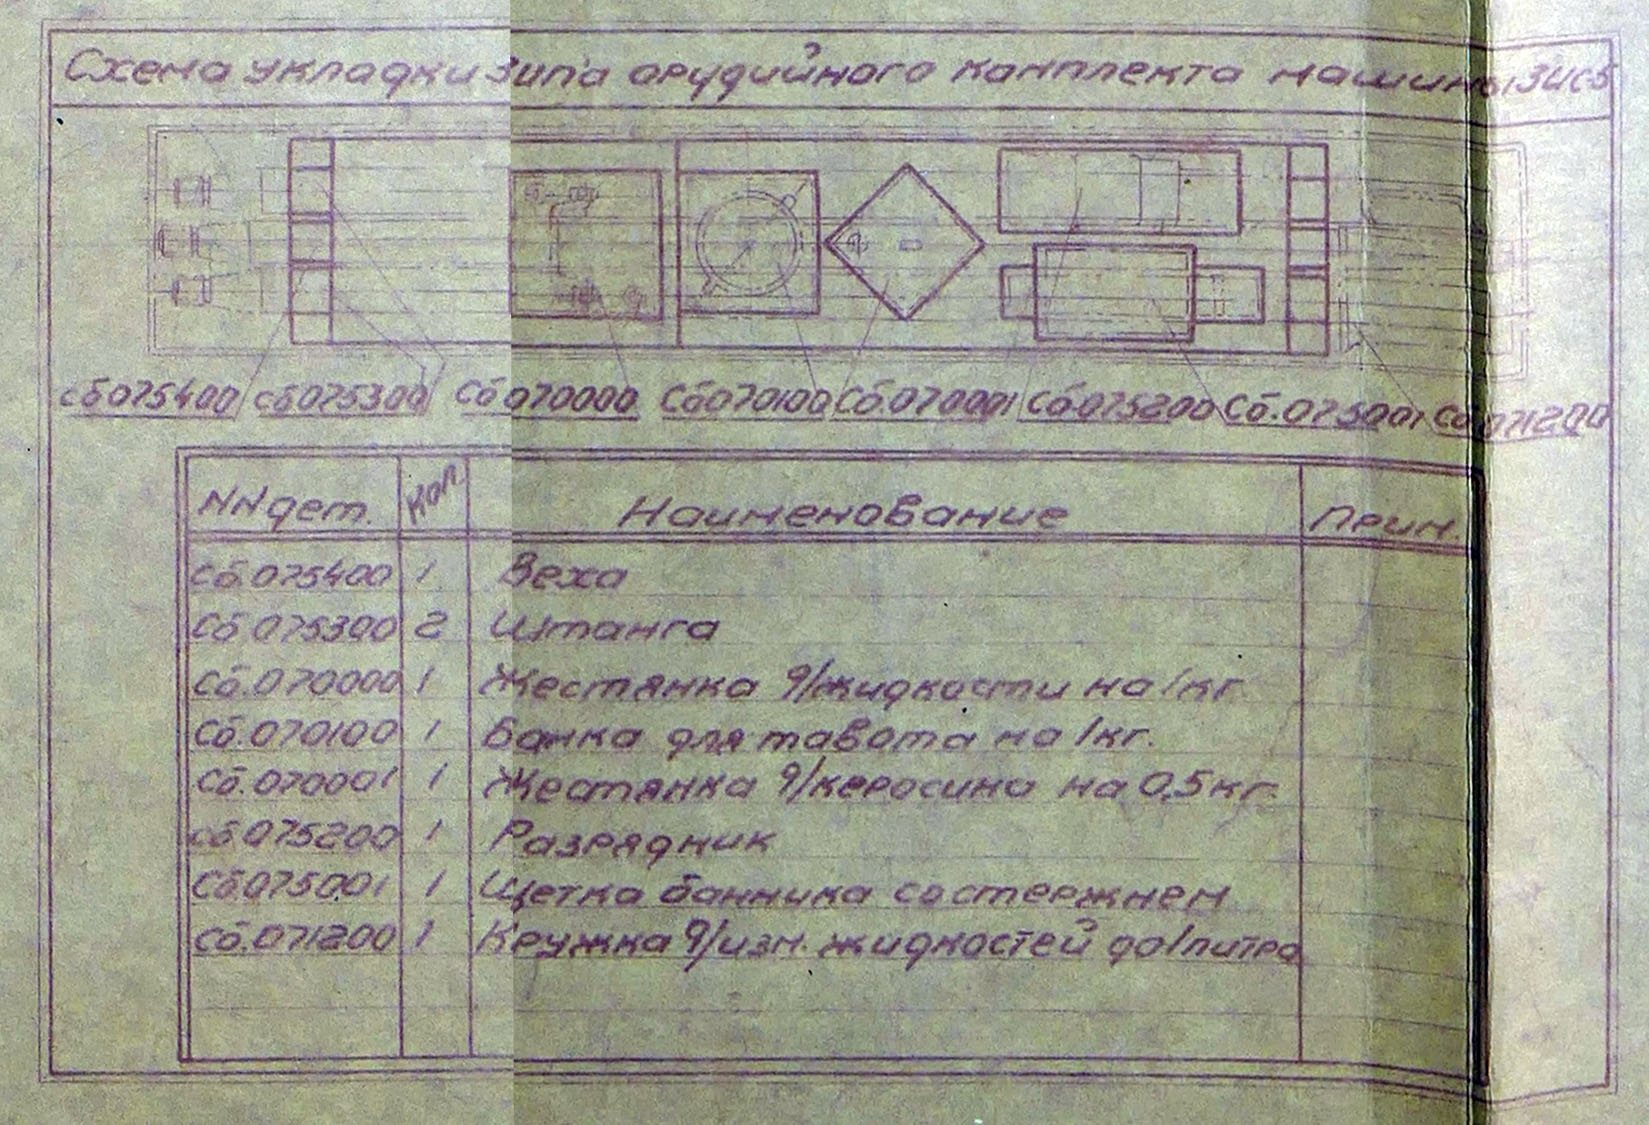 Схема укладки Зип'а орудийного комплекта машины ЗИС-5
Сб075400 Сб075300 Сб070000 Сб070100 Сб.070001 Сб.075200 Сб.075001 Сб.071200
NN дет. Кол. Наименование Прим.
Сб.075400 1 Веха
Сб 075300 2 Штанга
Сб.070000 1 Жестянка д/жидкости на 1кг
Сб.070100 1 Банка для тавота на 1кг.
Сб.070001 1 Жестянка д/керосина на 0,5кг.
Сб 075200 1 Разрядник
Сб075001 1 Щетка банника со стержнем
Сб.071200 1 Кружка д/изм. жидкостей до 1 литра